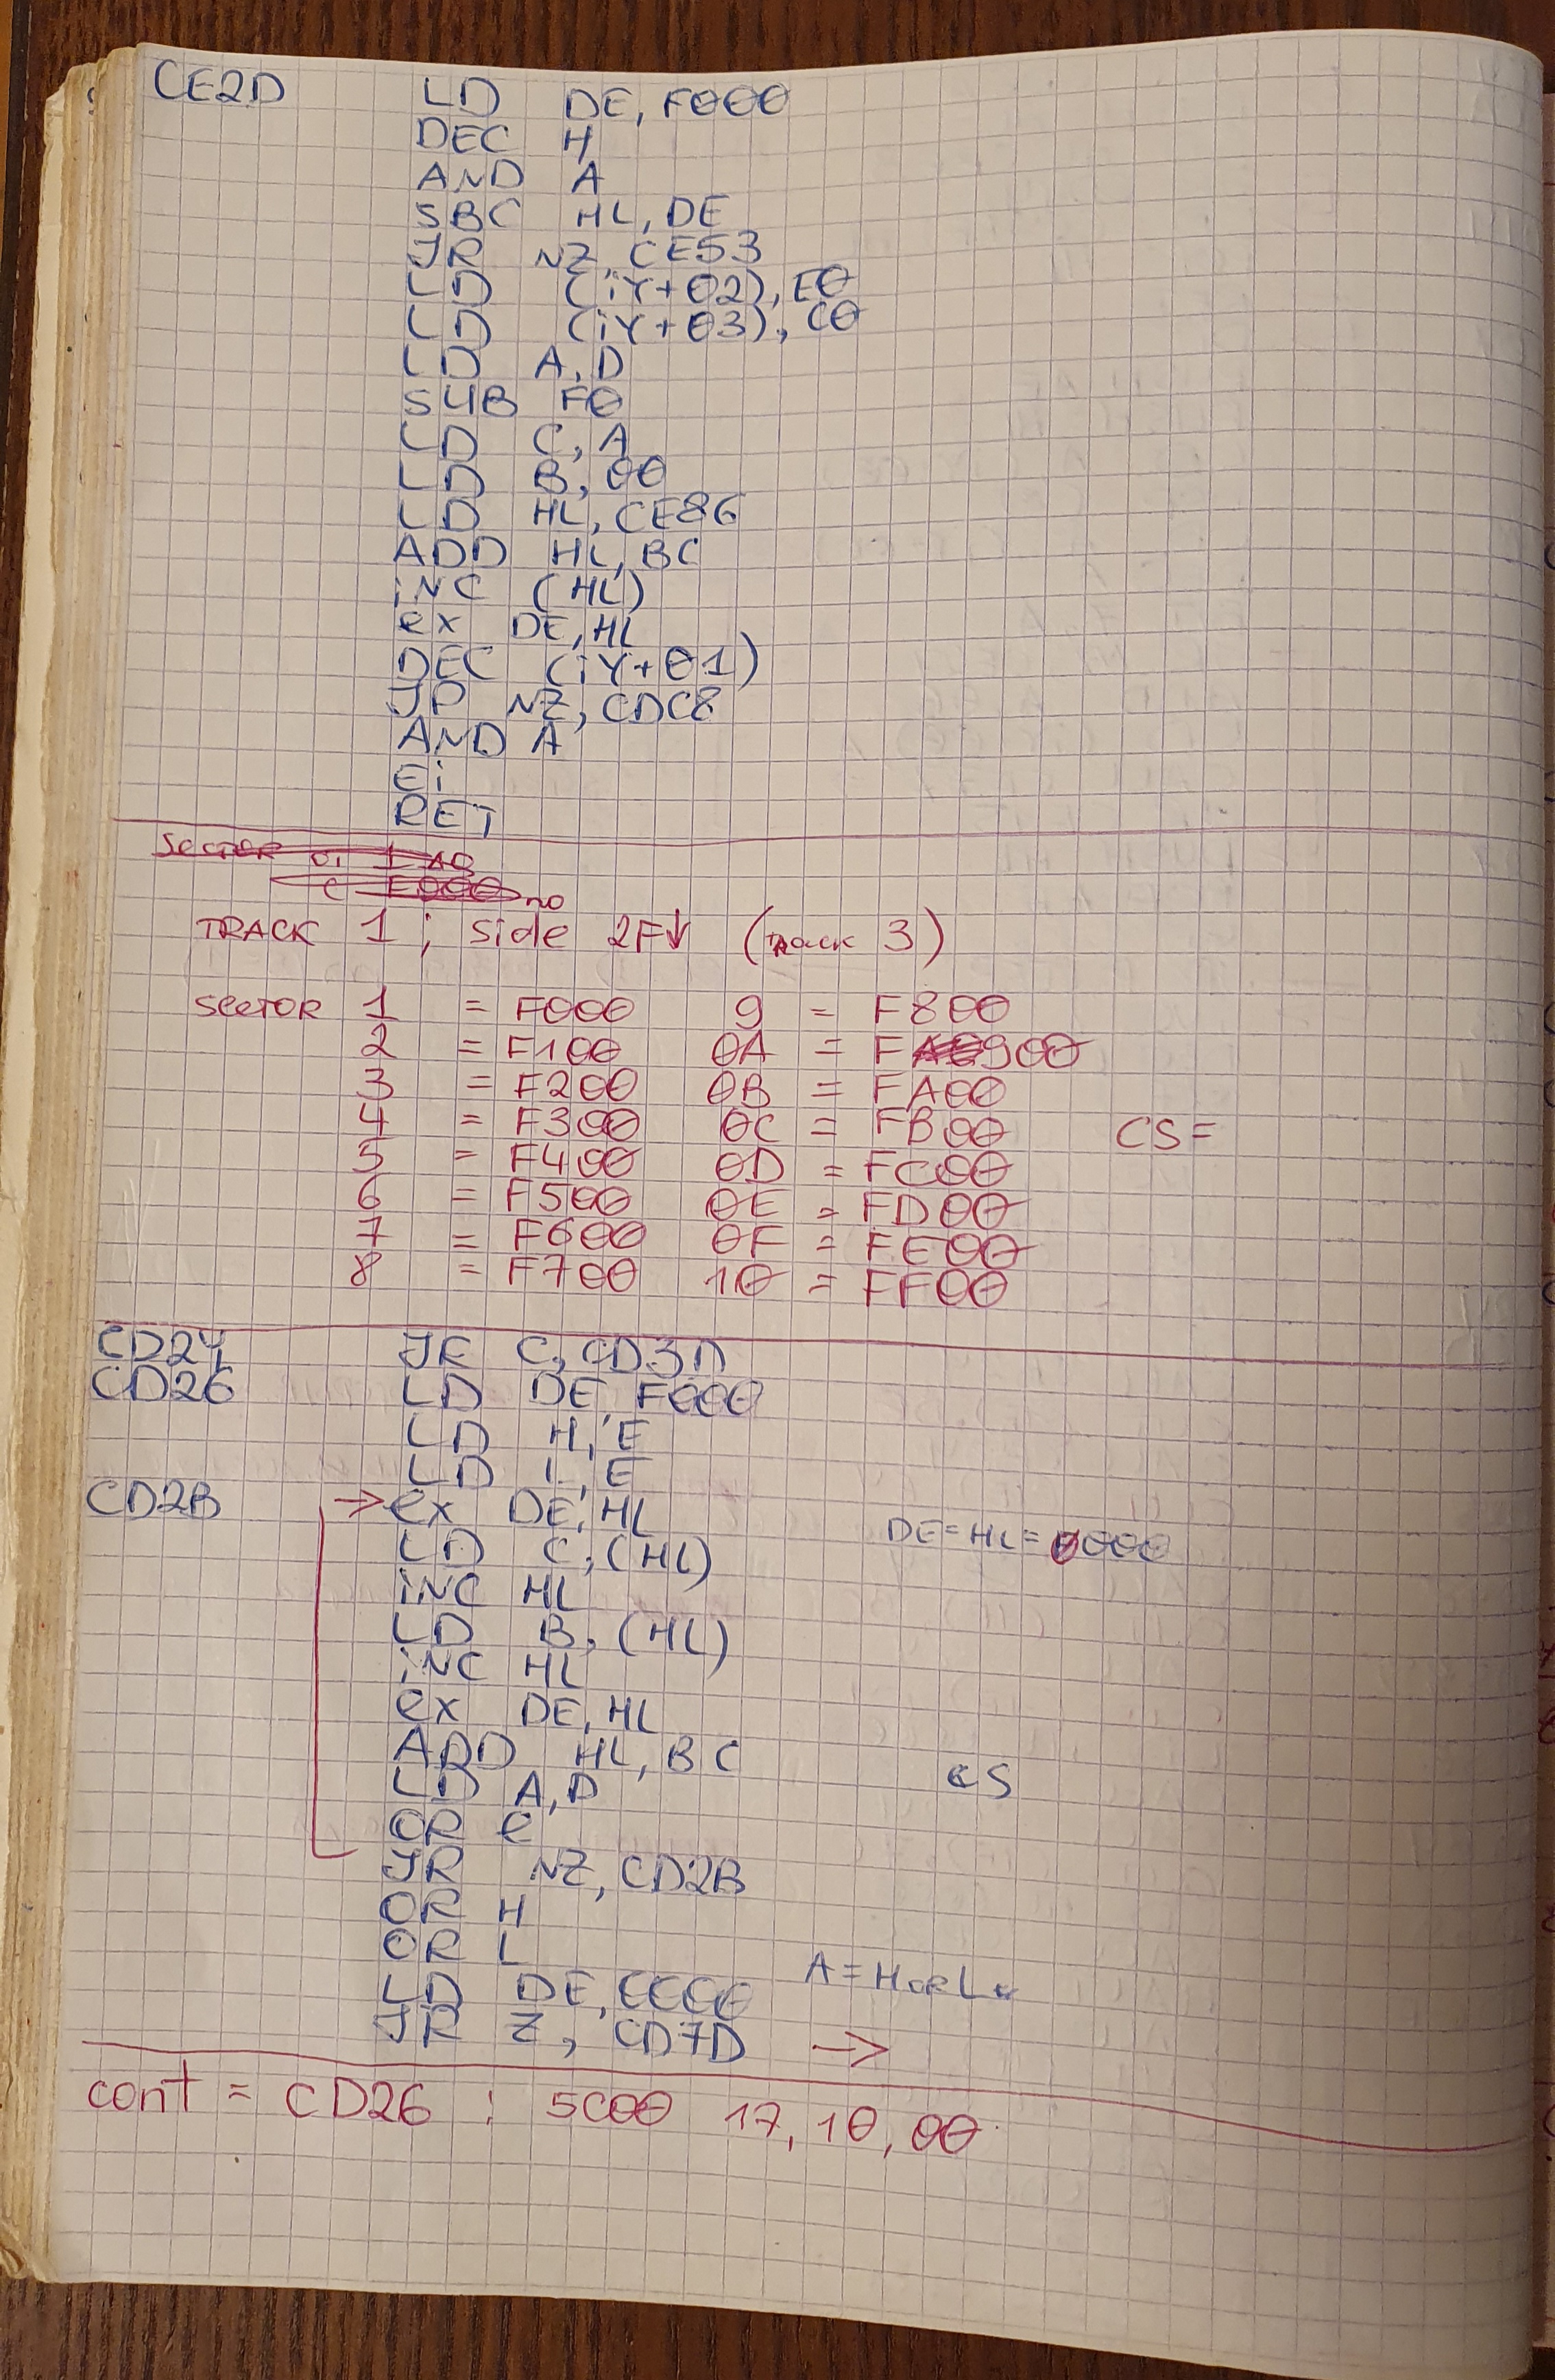 CE2D LD DE, F000
DEC H
AND A
SBC HL, DE
JR NZ, CE53
LD (iY+02), E0
LD (iY+03), C0
LD A, D
SUB F0
LD C, A
LD B, 00
LD HL, CE86
ADD HL, BC
iNC (HL)
ex DE, HL
DEC (iY+01)
JP NZ, CDC8
AND A
Ei
RET
no
TRACK 1 ; side 2F↓ (TRack 3)
SecTOR 1 = F000 9 = F800
2 = F100 0A = F900
3 = F200 0B = FA00
4 = F300 0C = FB00 CS=
5 = F400 0D = FC00
6 = F500 0E = FD00
7 = F600 0F = FE00
8 = F700 10 = FF00
CD24 JR C, CD3D
CD26 LD DE, F000
LD H, E
LD L, E
CD2B → ex DE, HL
DE=HL=0000
LD C, (HL)
iNC HL
LD B, (HL)
iNC HL
ex DE, HL
ADD HL, BC
CS
LD A, D
OR e
JR NZ, CD2B
OR H
OR L
A=HorL
LD DE,
JR Z, CD7D →
cont = CD26 ; 5C00 17, 10, 00